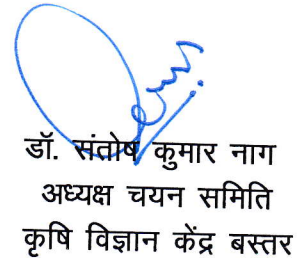 डॉ. संतोष कुमार नाग
अध्यक्ष चयन समिति
कृषि विज्ञान केंद्र बस्तर